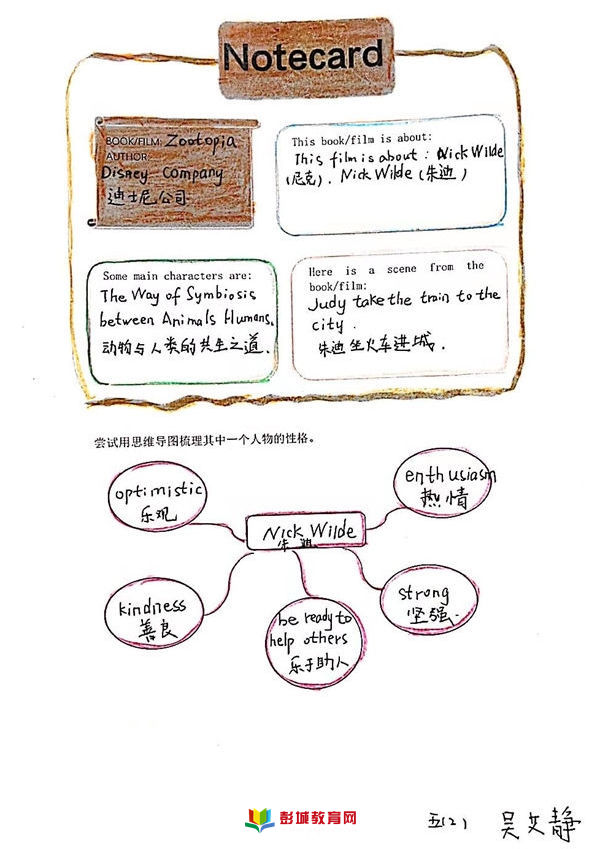 Notecard
BOOK/FILM: Zootopia
AUTHOR:
Disney Company
迪士尼公司
This book/film is about:
This film is about: Nick Wilde
(尼克). Nick Wilde (朱迪)
Some main characters are:
The Way of Symbiosis
between Animals Humans.
动物与人类的共生之道.
Here is a scene from the
book/film:
Judy take the train to the
city.
朱迪坐火车进城.
尝试用思维导图梳理其中一个人物的性格。
optimistic
乐观
enthusiasm
热情
Nick Wilde
朱迪
kindness
善良
be ready to
help others
乐于助人
strong
坚强.
彭城教育网
五(2) 吴文静